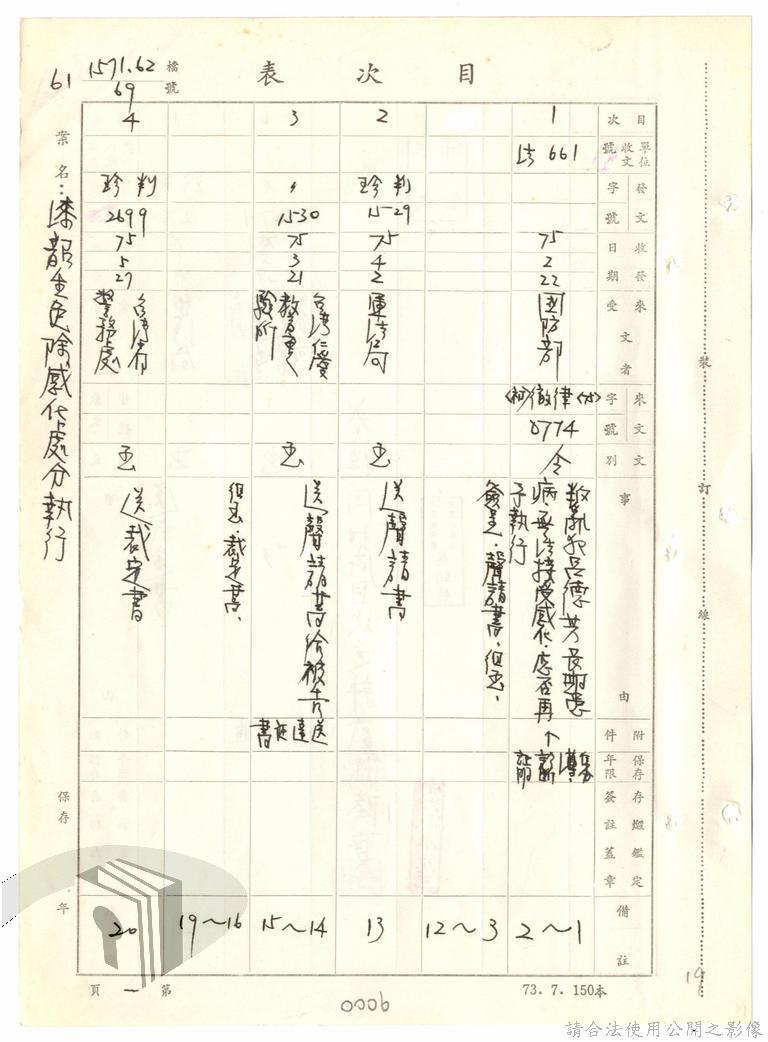 目次表
檔號
1571.62
69
61
案名：
免除感化處分執行
保存 年
目次
單位收文號
發文字號
收發日期
來受文者
來文字號
文別
事由
附件
保存年限
存燬鑑定簽註蓋章
備註
1
法 661
75
2
22
國防部
律 〈75〉
0774
令
病,
執行
2~1
簽呈,聲請書,
12~3
2
珍判
1529
75
4
2
函
送聲請書
13
3
〃
1530
75
3
21
台灣仁愛教育實驗所
函
送聲請書給被告
送達証書
15~14
裁定書、
19~16
4
珍判
2699
75
5
27
台灣省警務處
函
送裁定書
20
第 一 頁
73. 7. 150本
0006
19
裝訂線
請合法使用公開之影像